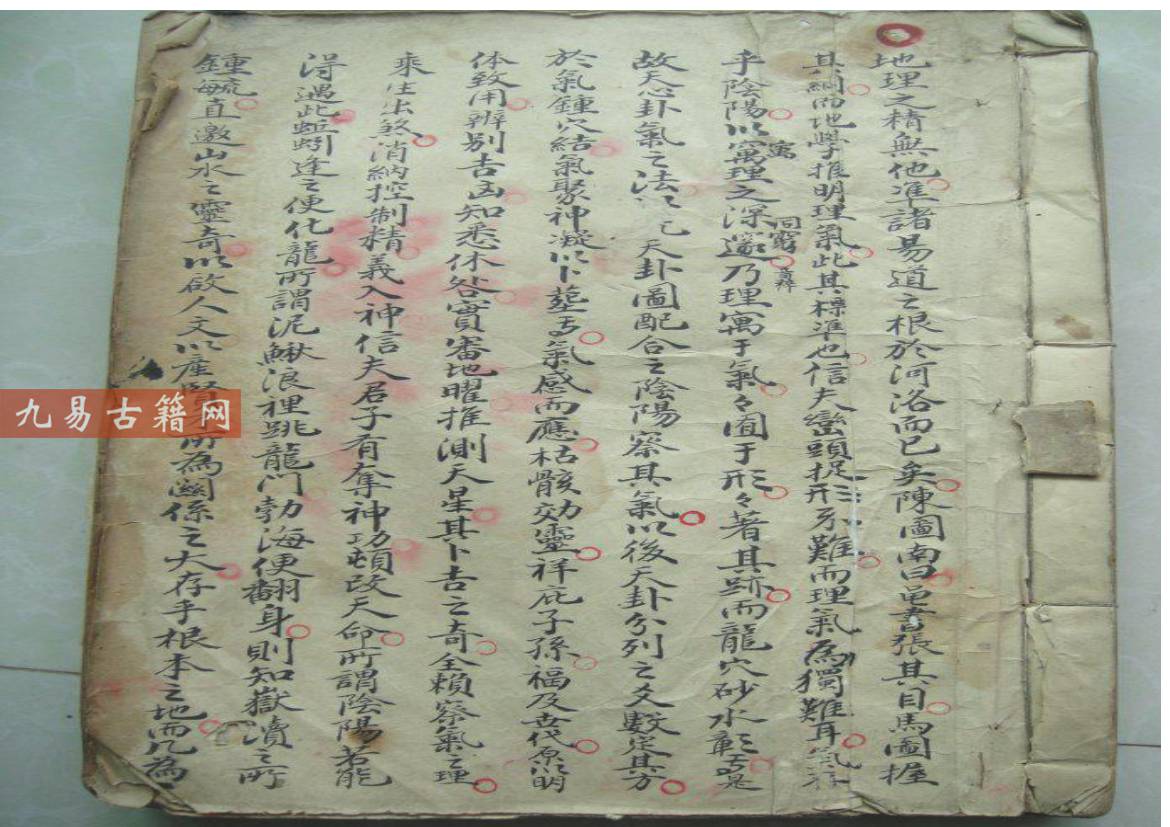 地理之精無他准諸易道之根於河洛而已矣陳圖南曰 書張其目馬圖握
其綱而地學推明理氣此其標准也信夫巒頭捉形 難而理氣為獨難耳氣
乎陰陽以寓理之深邃乃理寓于氣々囿于形々著其跡而龍穴砂水彰 是
寓
同
故天心卦氣之法以 天卦圖配合之陰陽察其氣以後天卦分列之爻數定其分
於氣鍾穴結氣聚神凝以卜墓 氣感而應枯骸効靈祥庇子孫福及 代原以明
体致用辨别吉凶知悉休咎實審地曜推測天星其卜吉之奇全賴察氣之理
乘生出煞消納控制精義入神信夫君子有奪神功頓改天命所謂陰陽若能
得遇此蚯蚓逢之便化龍所謂泥鰍浪裡跳龍门勃海便翻身則知嶽瀆之所
鍾毓直邀山水之靈奇以啟人文以産賢 所為關係之大存乎根本之地而凡為
九易古籍网